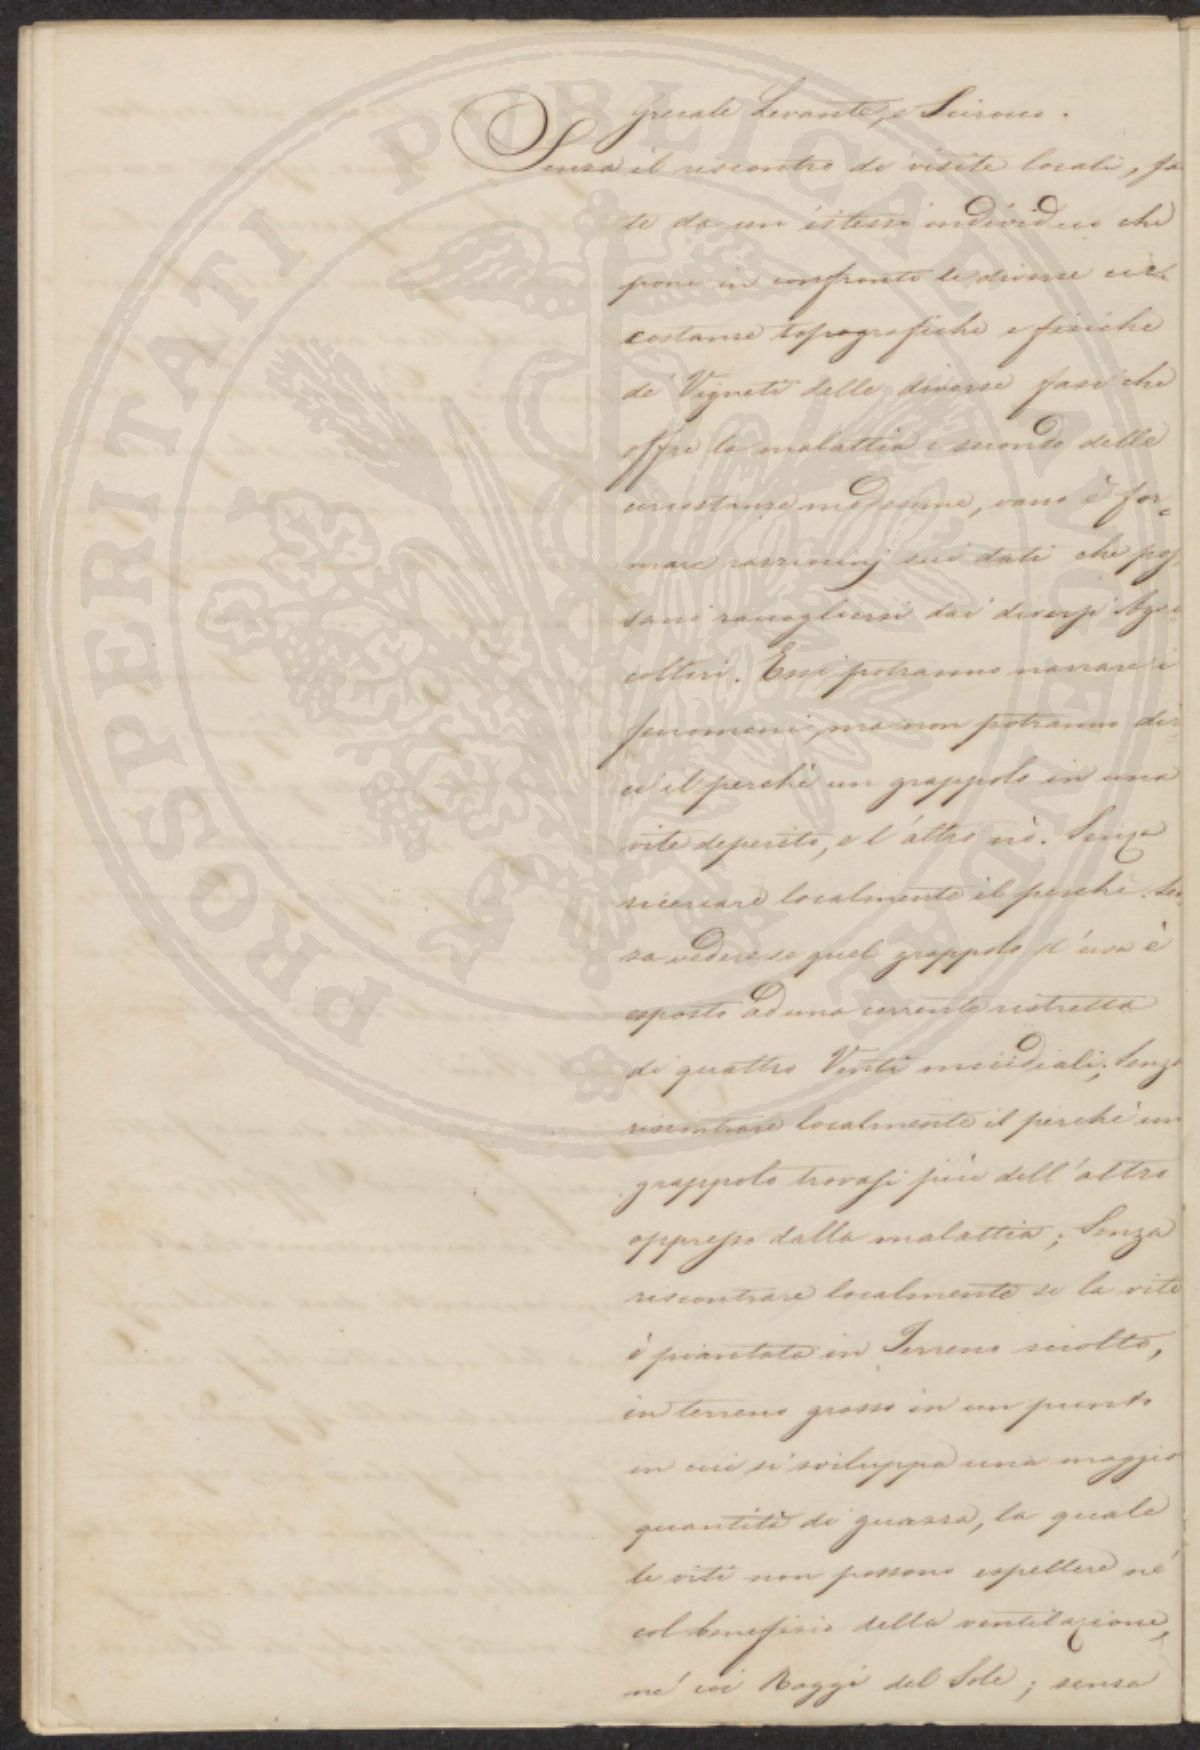 Grecale Levante, e Scirocco.
Senza il riscontro di visite locali, fa
te da un'istesso individuo che
pone in confronto le diverse cir
costanze topografiche e fisiche
de' Vigneti delle diverse fasi che
offre la malattia a seconda delle
circostanze medesime, vano è for=
mare razziocinj sui dati che pos
sano raccogliersi dai diversi Agri
coltori. Essi potranno narrare i
fenomeni, ma non potranno dir
ci il perchè un grappolo in una
vite deperito, e l'altro nò. Senza
ricercare localmente il perchè. Sen
za vedere se quel grappolo d'uva è
esposto ad una corrente ristretta
di quattro Venti micidiali; Senza
riscontrare localmente il perchè un
grappolo trovasi più dell'altro
oppresso dalla malattia; Senza
riscontrare localmente se la vite
è piantata in Terreno sciolto,
in terreno grosso in un punto
in cui si sviluppa una maggior
quantità di guazza, la quale
le viti non possono espellere nè
col benefizio della ventilazione,
nè coi Raggi del Sole; senza
PROSPERITATI PUBLICAE AUGENDAE